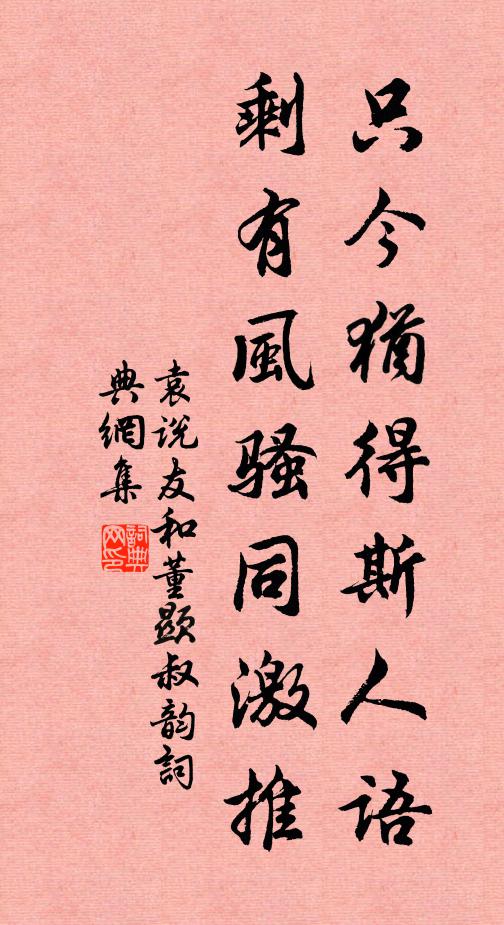 只今猶得斯人语
剩有風骚同激推
袁说友和董顯叔韵詞
典網集
詞典网印